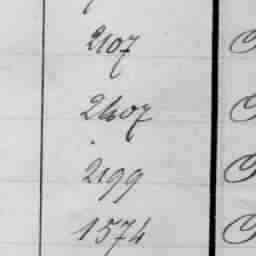 2107
2407
2199
1574